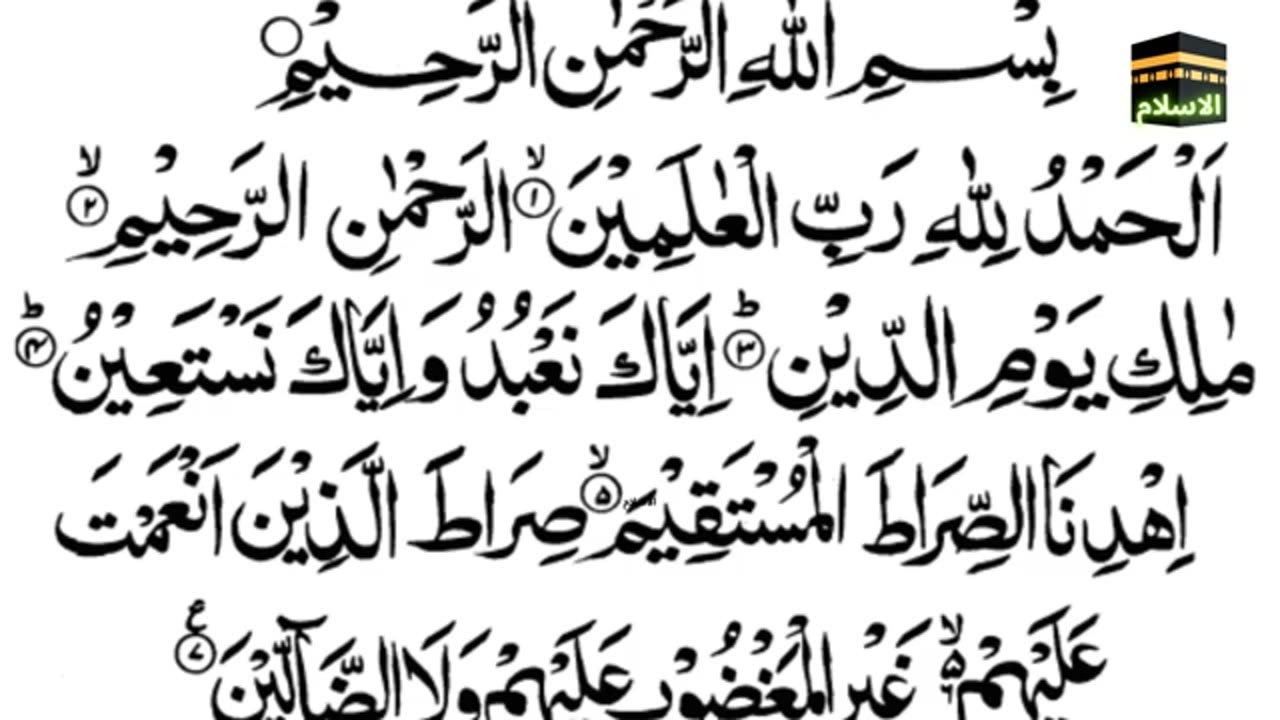 بِسْمِ اللهِ الرَّحْمٰنِ الرَّحِيْمِ
الاسلام
اَلْحَمْدُ لِلّٰهِ رَبِّ الْعٰلَمِيْنَ ۙ﴿۱﴾ الرَّحْمٰنِ الرَّحِيْمِ ۙ﴿۲﴾
مٰلِكِ يَوْمِ الدِّيْنِ ؕ﴿۳﴾ اِيَّاكَ نَعْبُدُ وَاِيَّاكَ نَسْتَعِيْنُ ؕ﴿۴﴾
اِهْدِنَا الصِّرَاطَ الْمُسْتَقِيْمَ ۙ﴿۵﴾ صِرَاطَ الَّذِيْنَ اَنْعَمْتَ
عَلَيْهِمْ ۙ۬ۦ غَيْرِ الْمَغْضُوْبِ عَلَيْهِمْ وَلَا الضَّآلِّيْنَ ﴿۷﴾ ع